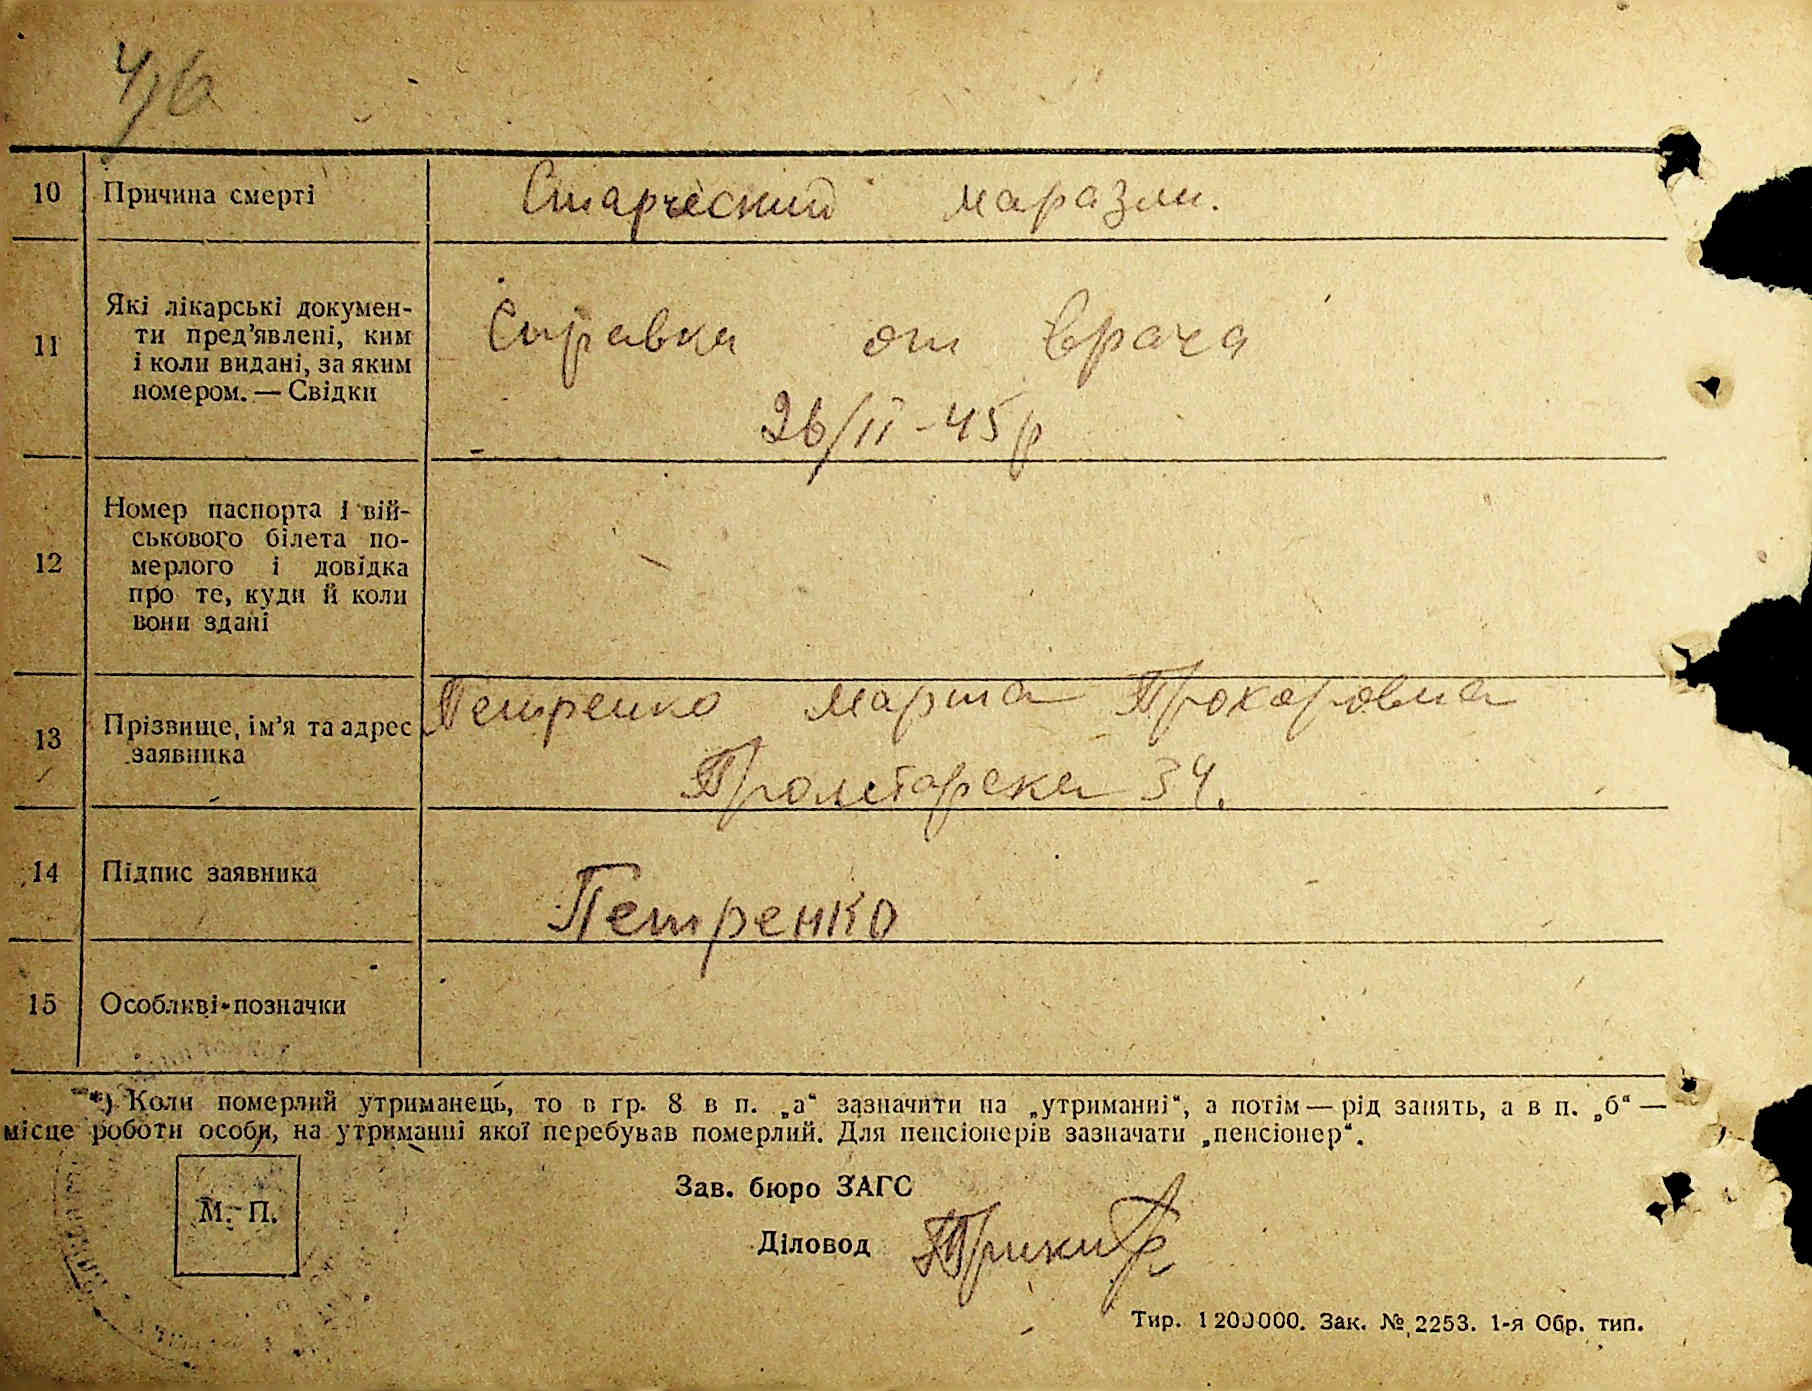 4/6
10 Причина смерті Старческий маразм.
11 Які лікарські докумен-
ти пред'явлені, ким
і коли видані, за яким
номером. — Свідки
Справка от врача
26/II-45р
12 Номер паспорта і вій-
ськового білета по-
мерлого і довідка
про те, куди й коли
вони здані
13 Прізвище, ім'я та адрес
заявника
Петренко Марта Прохоровна
Пролетарска 34.
14 Підпис заявника Петренко
15 Особливі позначки
*) Коли померлий утриманець, то в гр. 8 в п. „а“ зазначити на „утриманні“, а потім — рід занять, а в п. „б“ —
місце роботи особи, на утриманні якої перебував померлий. Для пенсіонерів зазначати „пенсіонер“.
М. П.
Зав. бюро ЗАГС
Діловод
Тир. 1 200 000. Зак. № 2253. 1-я Обр. тип.